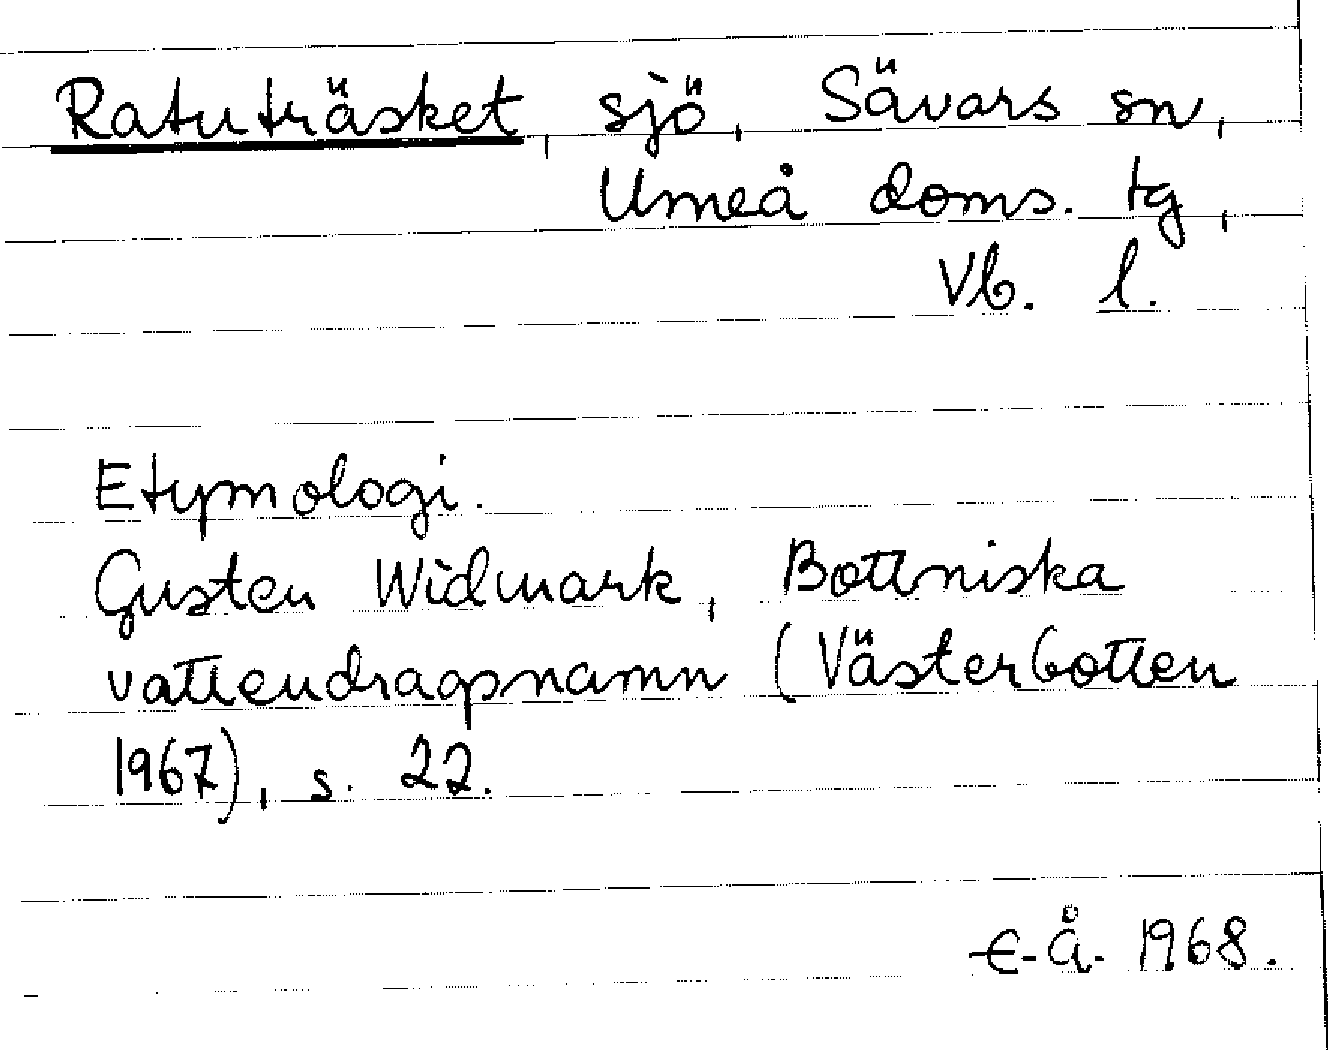 Ratuträsket, sjö, Sävars sn,
Umeå doms. tg,
Vb. l.
Etymologi.
Gusten Widmark, Bottniska
vattendragsnamn (Västerbotten
1967), s. 22.
E. Å. 1968.